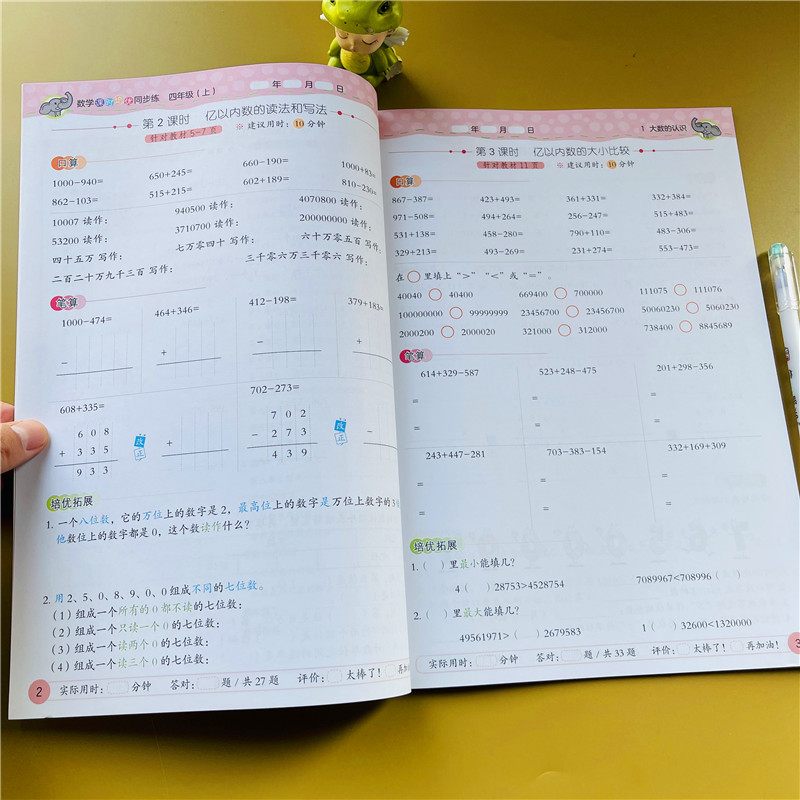 数学 同步练 四年级（上）
年 月 日
第 2 课时 亿以内数的读法和写法
针对教材 5-7 页 ※ 建议用时：10 分钟
口算
1000−940= 650+245= 660−190= 1000+83=
862−103= 515+215= 602+189= 810−230=
10007 读作： 940500 读作： 4070800 读作：
53200 读作： 3710700 读作： 200000000 读作：
四十五万 写作： 七万零四十 写作： 六十万零五百 写作：
二百二十万九千三百 写作： 三千零六万三千零六 写作：
笔算
1000−474= 464+346= 412−198= 379+183=
− + − +
608+335= 702−273=
6 0 8
+ 3 3 5
9 3 3
改正
+
7 0 2
− 2 7 3
4 3 9
改正
−
培优拓展
1. 一个八位数，它的万位上的数字是 2，最高位上的数字是万位上数字的 3
他数位上的数字都是 0，这个数读作什么？
2. 用 2、5、0、8、9、0、0 组成不同的七位数。
（1）组成一个所有的 0 都不读的七位数：
（2）组成一个只读一个 0 的七位数：
（3）组成一个读两个 0 的七位数：
（4）组成一个读三个 0 的七位数：
2 实际用时： 分钟 答对： 题 / 共 27 题 评价： 太棒了！ 再加油
年 月 日 1 大数的认识
第 3 课时 亿以内数的大小比较
针对教材 11 页 ※ 建议用时：10 分钟
口算
867−387= 423+493= 361+331= 332+384=
971−508= 494+264= 256−247= 515+483=
531+138= 458−280= 790+110= 483−306=
329+213= 493−269= 231+274= 553−473=
在 ○ 里填上 “>” “<” 或 “=”。
40040 ○ 40400 669400 ○ 700000 111075 ○ 111076
100000000 ○ 99999999 23456700 ○ 23456700 50060230 ○ 5060230
2000200 ○ 2000020 321000 ○ 312000 738400 ○ 8845689
笔算
614+329−587 523+248−475 201+298−356
= = =
= = =
243+447−281 703−383−154 332+169+309
= = =
= = =
培优拓展
1.（ ）里最小能填几？
4（ ）28753>4528754 7089967<708996（ ）
2.（ ）里最大能填几？
49561971>（ ）2679583 1（ ）32600<1320000
实际用时： 分钟 答对： 题 / 共 33 题 评价： 太棒了！ 再加油！ 3